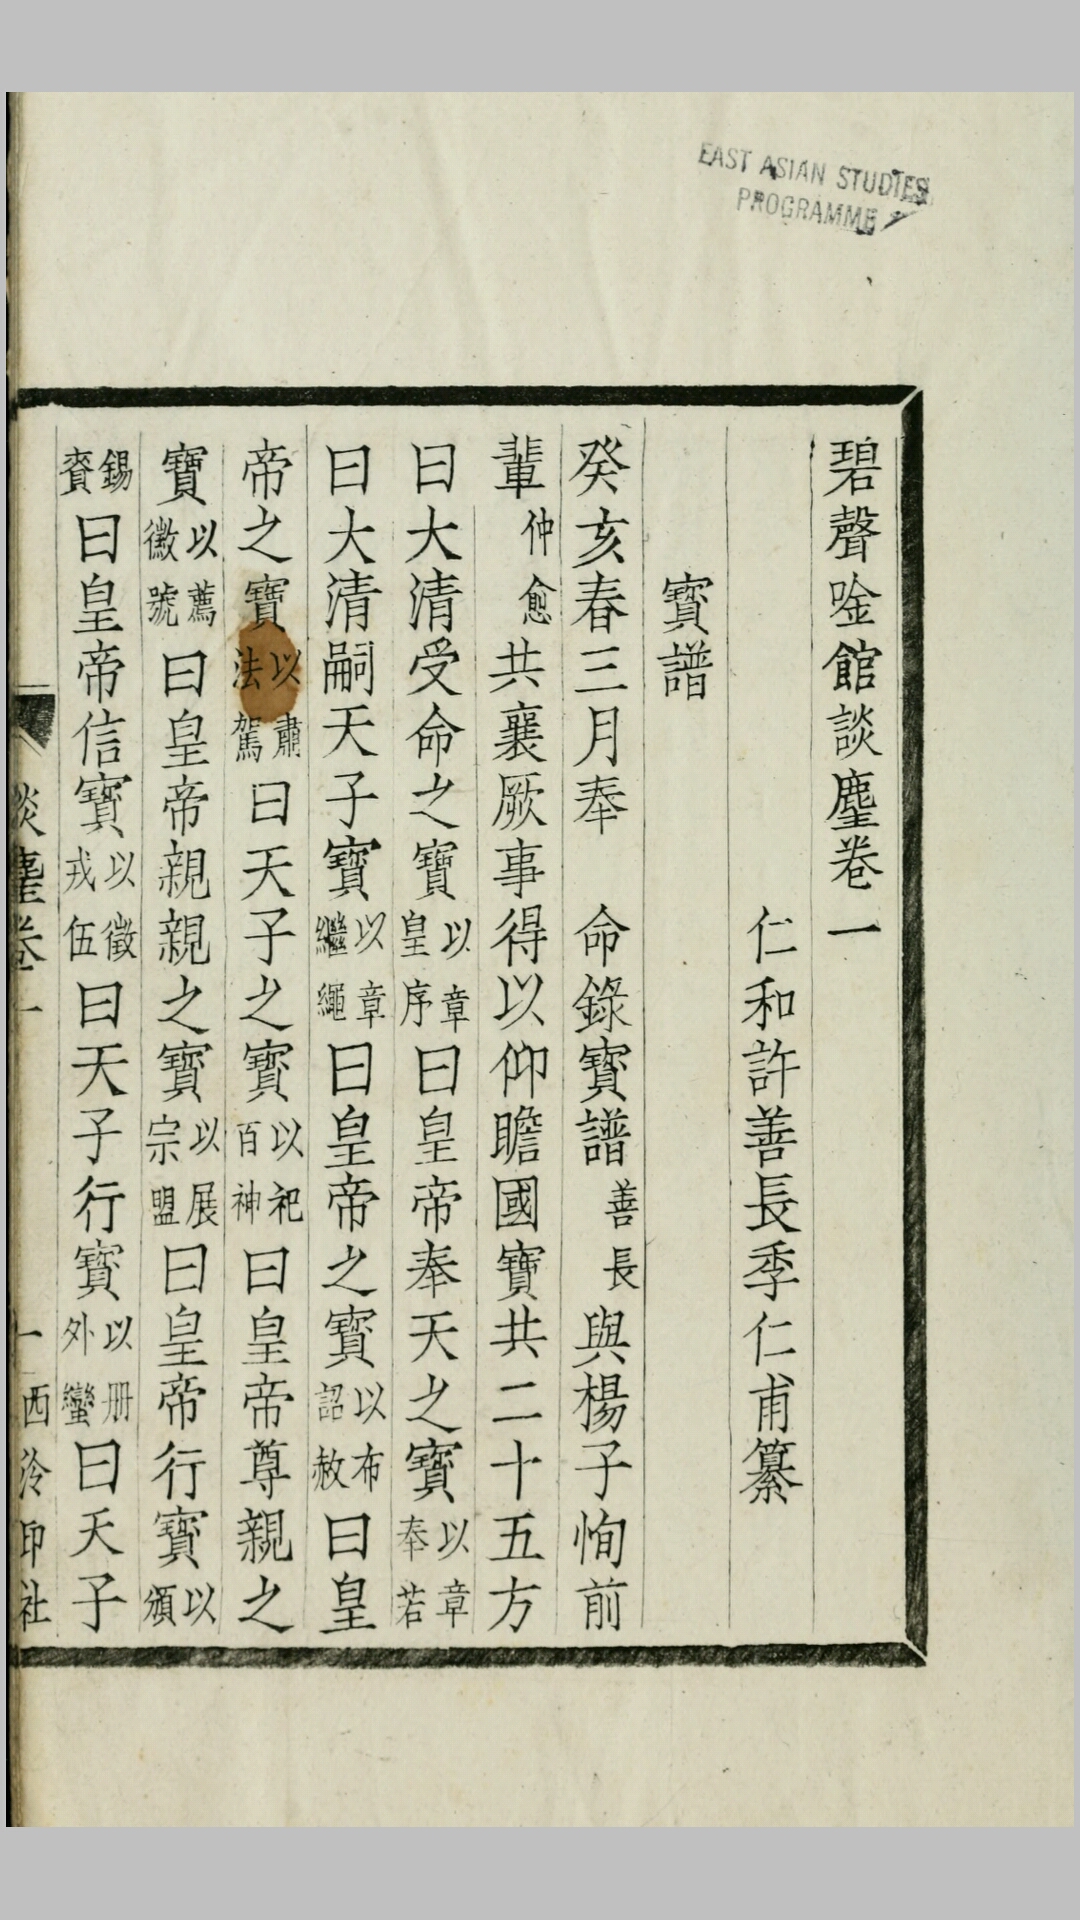 EAST ASIAN STUDIES
PROGRAMME
碧聲唫館談麈卷一
仁和許善長季仁甫纂
寶譜
癸亥春三月奉　命錄寶譜善長與楊子恂前
輩仲愈共襄厥事得以仰瞻國寶共二十五方
曰大清受命之寶以章皇序曰皇帝奉天之寶以章奉若
曰大清嗣天子寶以章繼繩曰皇帝之寶以布詔赦曰皇
帝之寶以肅法駕曰天子之寶以祀百神曰皇帝尊親之
寶以薦徽號曰皇帝親親之寶以展宗盟曰皇帝行寶以頒
錫賚曰皇帝信寶以徵戎伍曰天子行寶以册外蠻曰天子
談麈卷一
一
西泠印社